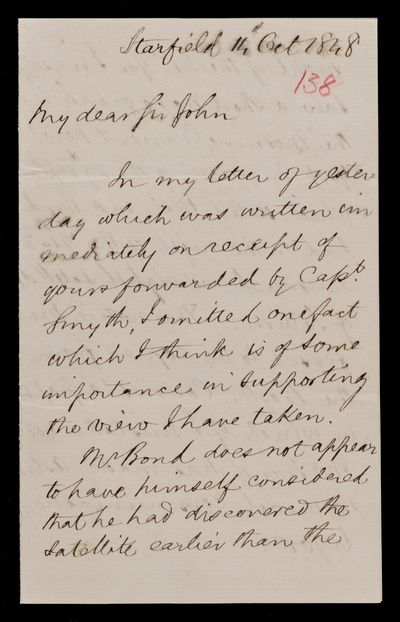 Starfield 14th Oct 1848
138
My dear Sir John
In my letter of yester
day which was written im
mediately on receipt of
yours forwarded by Capt.
Smyth, I omitted one fact
which I think is of some
importance in supporting
the view I have taken.
Mr. Bond does not appear
to have himself considered
that he had discovered the
satellite earlier than the